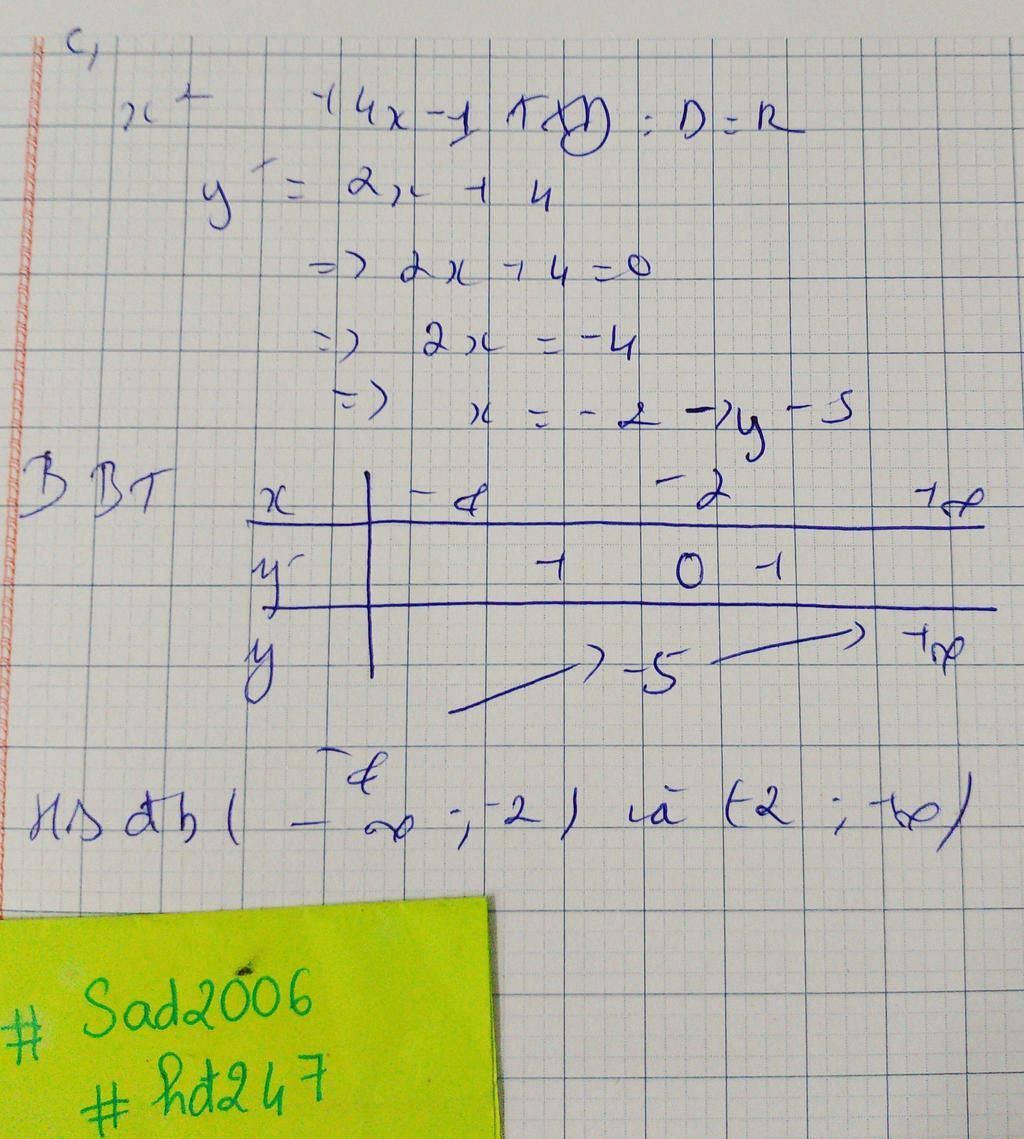 c,
x² +4x-1 TXĐ : D = R
y' = 2x + 4
=> 2x + 4 = 0
=> 2x = -4
=> x = -2 -> y - 5
BBT x -∞ -2 +∞
y' + 0 +
y -5 +∞
-∞
HS đb ( - ∞ ; -2 ) và (-2 ; +∞)
# Sad2006
# hd247